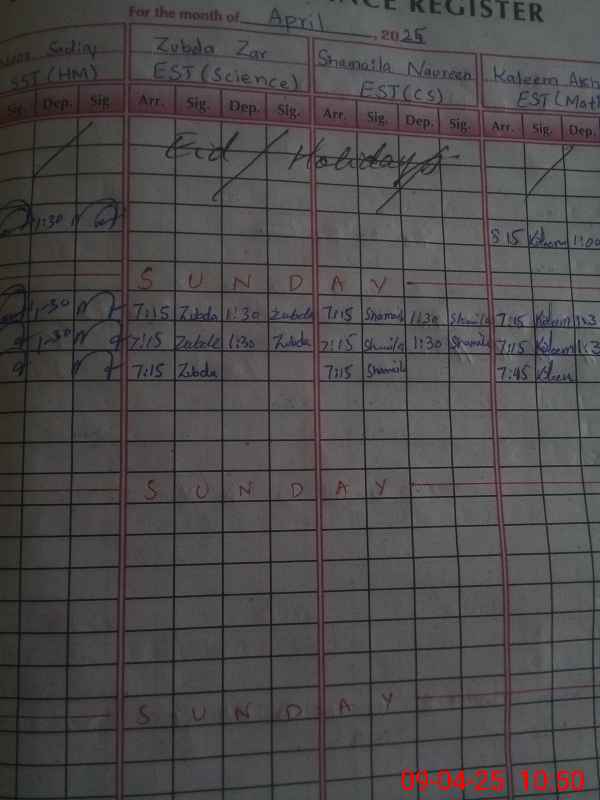 CE REGISTER
For the month of April, 2025
Sadiq Zubda Zar Shamaila Naureen Kaleem
SST (HM) EST (Science) EST (CS) EST (Math
Sig. Dep. Sig. Arr. Sig. Dep. Sig. Arr. Sig. Dep. Sig. Arr. Sig. Dep.
Eid / Holidays
1:30
8 15 Kaleem 1:00
S U N D A Y
1-30 7:15 Zubda 1:30 Zubda 7:15 Shamaila 1:30 Shamaila 7:15 Kaleem 1:3
1-30 7:15 Zubda 1:30 Zubda 7:15 Shamaila 1:30 Shamaila 7:15 Kaleem 1:3
7:15 Zubda 7:15 Shamaila 7:45 Kaleem
S U N D A Y
S U N D A Y
09-04-25 10:50